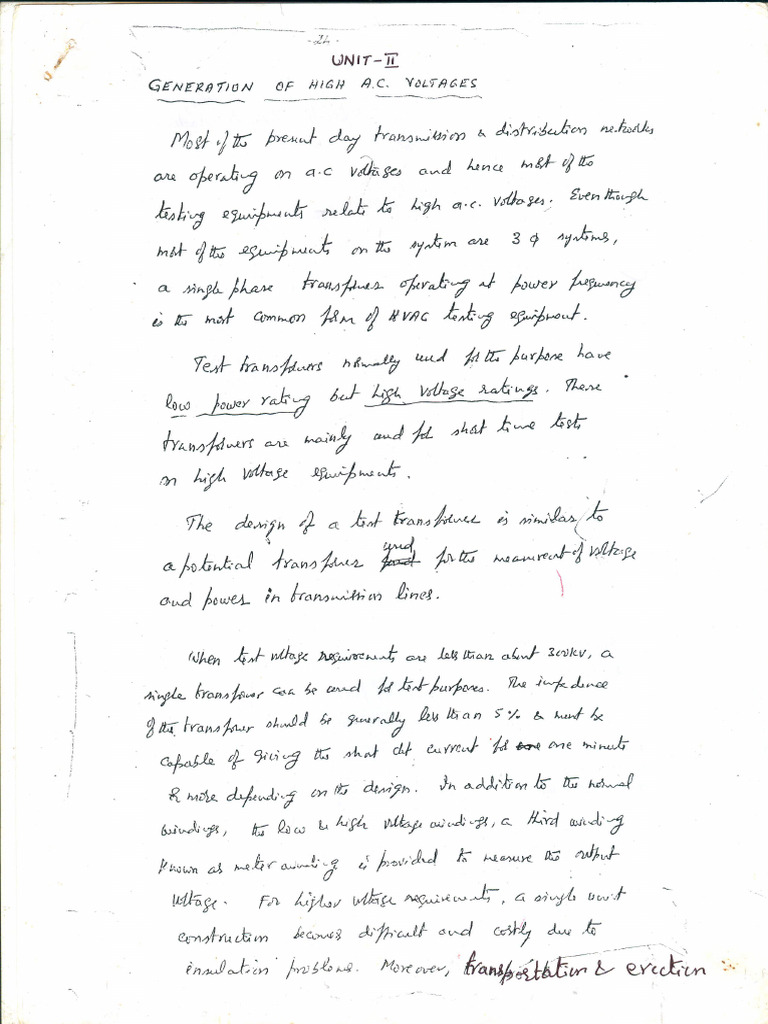 UNIT-II
GENERATION OF HIGH A.C. VOLTAGES
Most of the present day transmission & distribution networks
are operating on a.c voltages and hence most of the
testing equipments relate to high a.c. voltages. Even though
most of the equipments on the system are 3 φ systems,
a single phase transformer operating at power frequency
is the most common form of HVAC testing equipment.
Test transformers normally used for the purpose have
low power rating but high voltage ratings. These
transformers are mainly used for short time tests
on high voltage equipments.
The design of a test transformer is similar to
used
a potential transformer for the measurement of voltage
and power in transmission lines.
When test voltage requirements are less than about 300kV, a
single transformer can be used for test purposes. The impedence
of the transformer should be generally less than 5% & must be
capable of giving the short ckt current for one minute
& more depending on the design. In addition to the normal
windings, the low & high voltage windings, a third winding
known as meter winding is provided to measure the output
voltage. For higher voltage requirements, a single unit
construction becomes difficult and costly due to
insulation problems. Moreover, transportation & erection